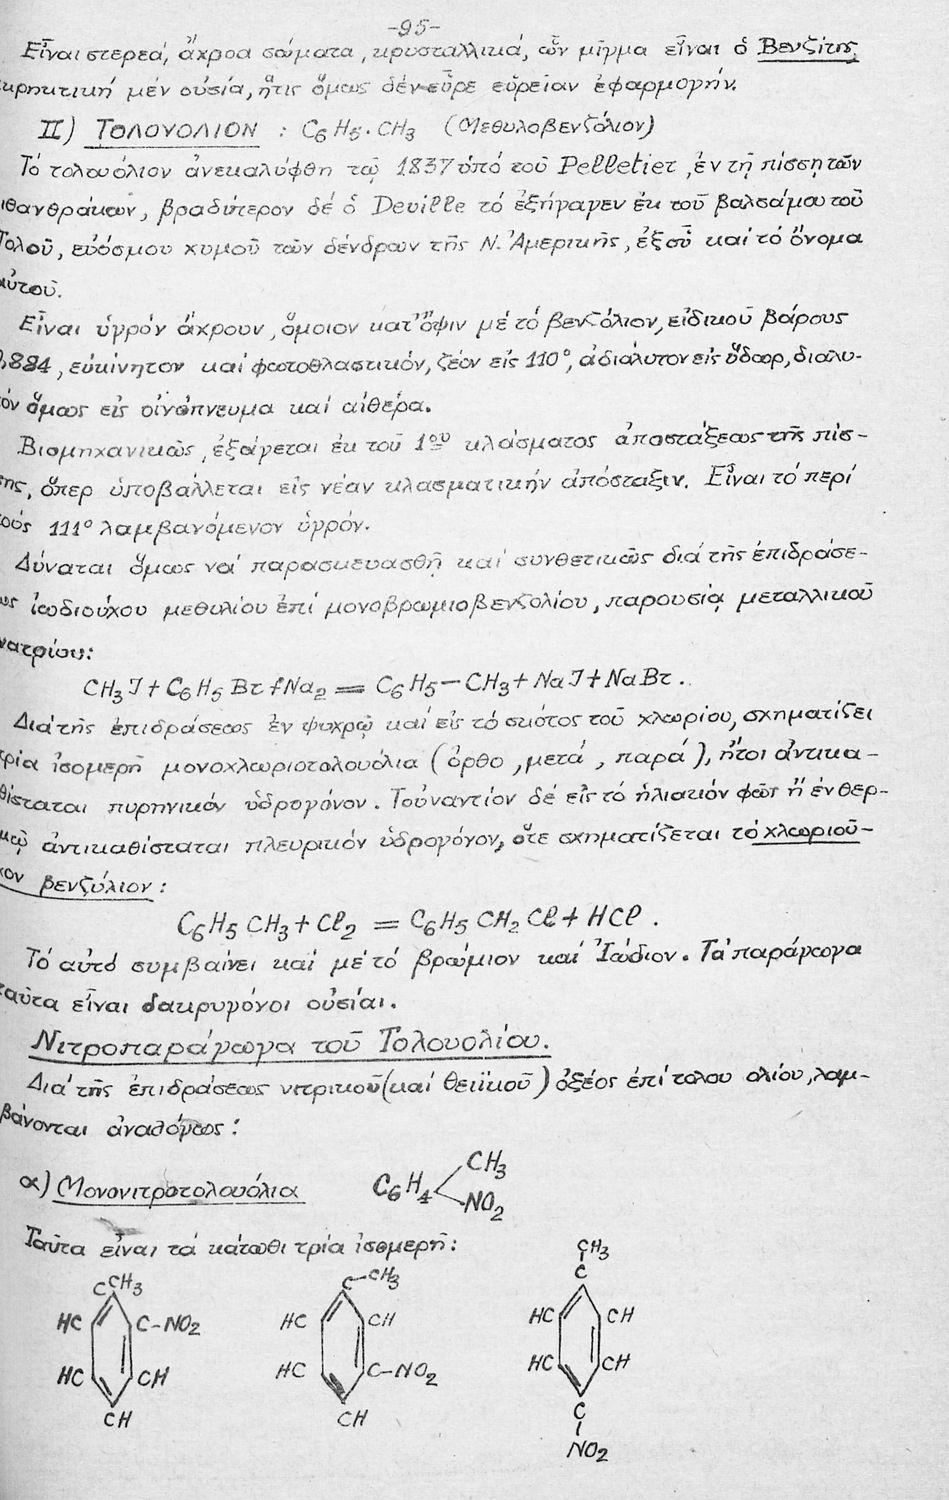 -95-
Εἶναι στερεά, ἄχροα σώματα, κρυσταλλικά, ὧν μῖγμα εἶναι ὁ Βενζίτης,
κρηκτική μέν οὐσία, ἥτις ὅμως δέν εὗρε εὐρεῖαν ἐφαρμογήν.
II) ΤΟΛΟΥΟΛΙΟΝ : C6H5.CH3 (Μεθυλοβενζόλιον)
Τό τολουόλιον ἀνεκαλύφθη τῷ 1837 ὑπό τοῦ Pelletier, ἐν τῇ πίσσῃ τῶν
ιθανθράκων, βραδύτερον δέ ὁ Deville τό ἐξήγαγεν ἐκ τοῦ βαλσάμου τοῦ
Τολοῦ, εὐόσμου χυμοῦ τῶν δένδρων τῆς Ν. Ἀμερικῆς, ἐξ οὗ καί τό ὄνομα
αὐτοῦ.
Εἶναι ὑγρόν ἄχρουν, ὅμοιον κατ' ὄψιν μέ τό βενζόλιον, εἰδικοῦ βάρους
0,884, εὐκίνητον καί φωτοθλαστικόν, ζέον εἰς 110°, ἀδιάλυτον εἰς ὕδωρ, διαλυ-
τόν ὅμως εἰς οἰνόπνευμα καί αἰθέρα.
Βιομηχανικῶς, ἐξάγεται ἐκ τοῦ 1ου κλάσματος ἀποστάξεως τῆς πίσ-
σης, ὅπερ ὑποβάλλεται εἰς νέαν κλασματικήν ἀπόσταξιν. Εἶναι τό περί
τούς 111° λαμβανόμενον ὑγρόν.
Δύναται ὅμως νά παρασκευασθῇ καί συνθετικῶς διά τῆς ἐπιδράσε-
ως ἰωδιούχου μεθυλίου ἐπί μονοβρωμιοβενζολίου, παρουσίᾳ μεταλλικοῦ
νατρίου:
CH3J + C6H5Br + Na2 = C6H5-CH3 + NaJ + NaBr.
Διά τῆς ἐπιδράσεως ἐν ψυχρῷ καί εἰς τό σκότος τοῦ χλωρίου, σχηματίζει
τρία ἰσομερῆ μονοχλωριοτολουόλια (ὀρθο, μετά, παρά), ἤτοι ἀντικα-
θίσταται πυρηνικόν ὑδρογόνον. Τοὐναντίον δέ εἰς τό ἡλιακόν φῶς ἤ ἐν θερ-
μῷ ἀντικαθίσταται πλευρικόν ὑδρογόνον, ὅτε σχηματίζεται τό χλωριοῦ-
χον βενζύλιον:
C6H5CH3 + Cl2 = C6H5CH2Cl + HCl.
Τό αὐτό συμβαίνει καί μέ τό βρώμιον καί Ἰώδιον. Τά παράγωγα
ταῦτα εἶναι δακρυγόνοι οὐσίαι.
Νιτροπαράγωγα τοῦ Τολουολίου.
Διά τῆς ἐπιδράσεως νιτρικοῦ (καί θειϊκοῦ) ὀξέος ἐπί τολουολίου, λαμ-
βάνονται ἀναλόγως:
α) Μονονιτροτολουόλια C6H4 CH3 NO2
Ταῦτα εἶναι τά κάτωθι τρία ἰσομερῆ:
CCH3 C-CH3 CH3 C
HC C-NO2 HC CH HC CH
HC CH HC C-NO2 HC CH
CH CH C
NO2